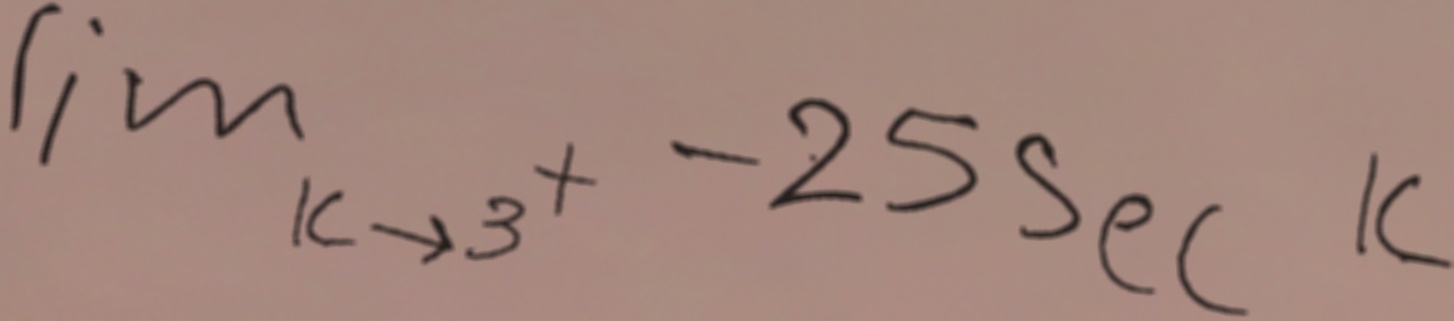 lim k→3⁺ -25 sec k